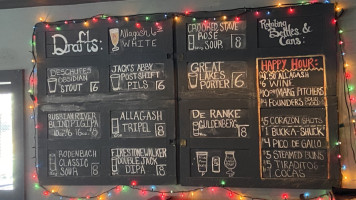 Drafts:
Allagash 6
White
Crooked Stave
Rose
Sour 8
Rotating
Bottles &
Cans:
Deschutes
Obsidian
Stout
Jack's Abby
Post Shift
Pils 16
Great
Lakes
Porter 6
Happy Hour:
Allagash
6 Wine
Mang
Founders
Russian River
Blind Pig IPA
Allagash
Tripel 8
De Ranke
Guldenberg
8
5 Corazon Shots
1 Bucka-Shuck
4 Pico de Gallo
5 Steamed Buns
Tiraditos
Cocas
Rodenbach
Classic
Sour 8
Firestone Walker
Double Jack
DIPA 8